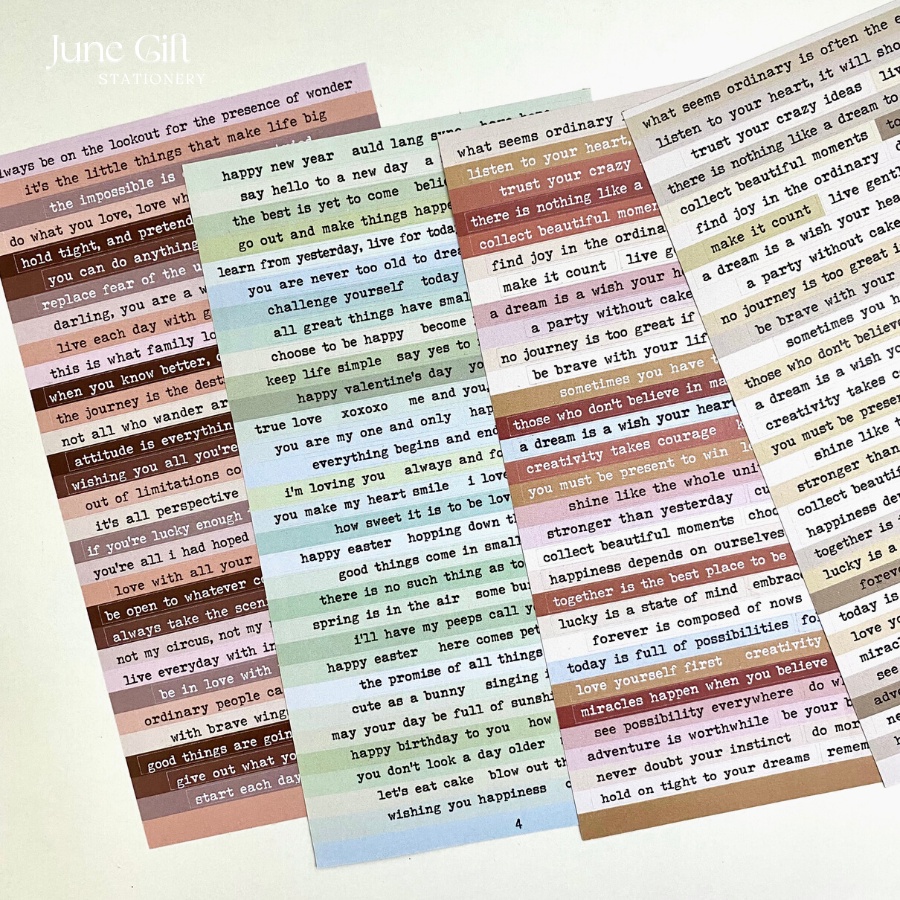 June Gift
STATIONERY
always be on the lookout for the presence of wonder
it's the little things that make life big
the impossible is
do what you love, love
hold tight, and pretend
you can do anything
replace fear of the
darling, you are a
live each day with
this is what family
when you know better,
the journey is the
not all who wander
attitude is everything
wishing you all you're
out of limitations
it's all perspective
if you're lucky enough
you're all i had hoped
love with all your
be open to whatever
always take the
not my circus, not my
live everyday with
be in love with
ordinary people
with brave
good things are
give out what
start each day
happy new year auld lang
say hello to a new day a
the best is yet to come
go out and make things
learn from yesterday, live for
you are never too old to
challenge yourself today
all great things have
choose to be happy become
keep life simple say yes to
happy valentine's day
true love xoxoxo me and you,
you are my one and only
everything begins and
i'm loving you always and
you make my heart smile i
how sweet it is to be
happy easter hopping down
good things come in
there is no such thing as
spring is in the air some
i'll have my peeps call
happy easter here comes
the promise of all things
cute as a bunny singing
may your day be full of
happy birthday to you how
you don't look a day older
let's eat cake blow out
wishing you happiness
4
what seems ordinary
listen to your heart,
trust your crazy
there is nothing like a
collect beautiful
find joy in the
make it count live
a dream is a wish your
a party without cake
no journey is too great if
be brave with your
sometimes you have
those who don't believe in
a dream is a wish your heart
creativity takes courage
you must be present to win
shine like the whole
stronger than yesterday
collect beautiful moments
happiness depends on ourselves
together is the best place to be
lucky is a state of mind
forever is composed of nows
today is full of possibilities
love yourself first creativity
miracles happen when you believe
see possibility everywhere do
adventure is worthwhile be your
never doubt your instinct do
hold on tight to your dreams
what seems ordinary is often the
listen to your heart, it will
trust your crazy ideas
there is nothing like a dream to
collect beautiful moments
find joy in the ordinary
make it count live
a dream is a wish your
a party without
no journey is too great
be brave with your
sometimes you
those who don't
a dream is a wish
creativity takes
you must be
shine like
stronger than
collect
happiness
together is
lucky is a
today is
love
see